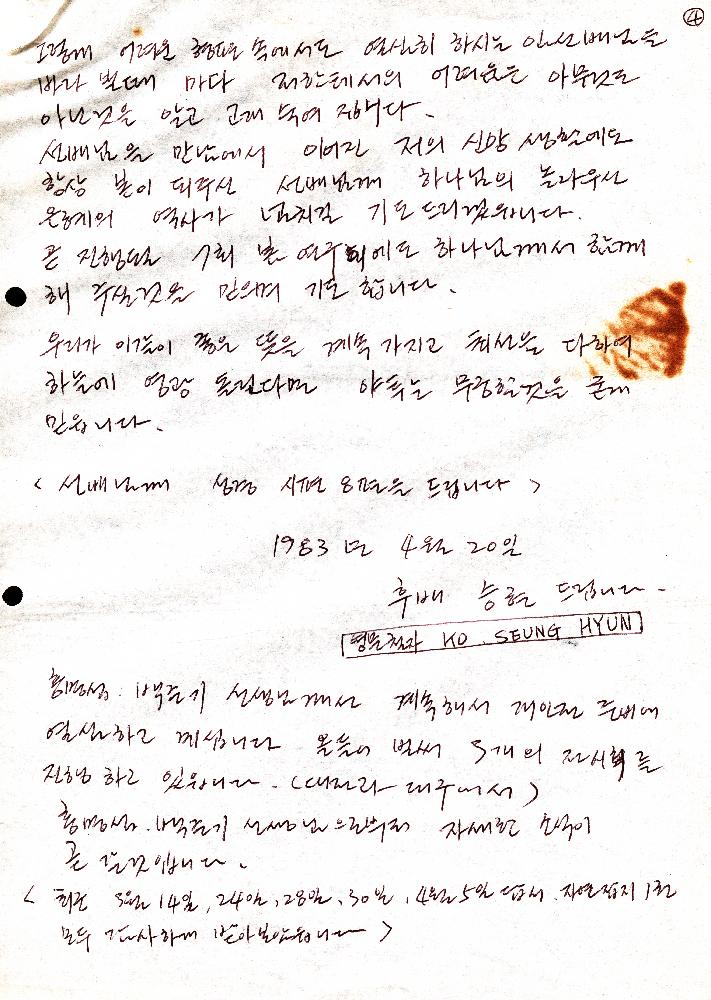 ④
그렇게 어려운 형편 속에서도 열심히 하시는 임선배님을
바라 볼때 마다 저한테서의 어려움은 아무것도
아닌것을 알고 고개 숙여 집니다.
선배님을 만남에서 이어진 저의 신앙 생활에도
항상 본이 되주신 선배님께 하나님의 놀라우신
은혜의 역사가 넘치길 기도드리겠읍니다.
곧 진행될 7회 봄 연구회에도 하나님께서 함께
해 주실것을 믿으며 기도 합니다.
우리가 이같이 좋은 뜻을 계속 가지고 최선을 다하여
하늘에 영광 돌린다면 야투는 무궁할것을 굳게
믿읍니다.
< 선배님께 성경 시편 8편을 드립니다 >
1983년 4월 20일
후배 승현 드립니다.
KO. SEUNG HYUN
선생님께서 계속해서 개인전 준비에
열심하고 계십니다 올들어 벌써 5개의 전시회를
진행 하고 있읍니다. (대전과 대구에서)
선생님으로부터 자세한 소식이
곧 갈것입니다.
< 최근 3월 14일, 24일, 28일, 30일, 4월 5일 엽서. 1권
모두 감사하게 받아보았읍니다 >